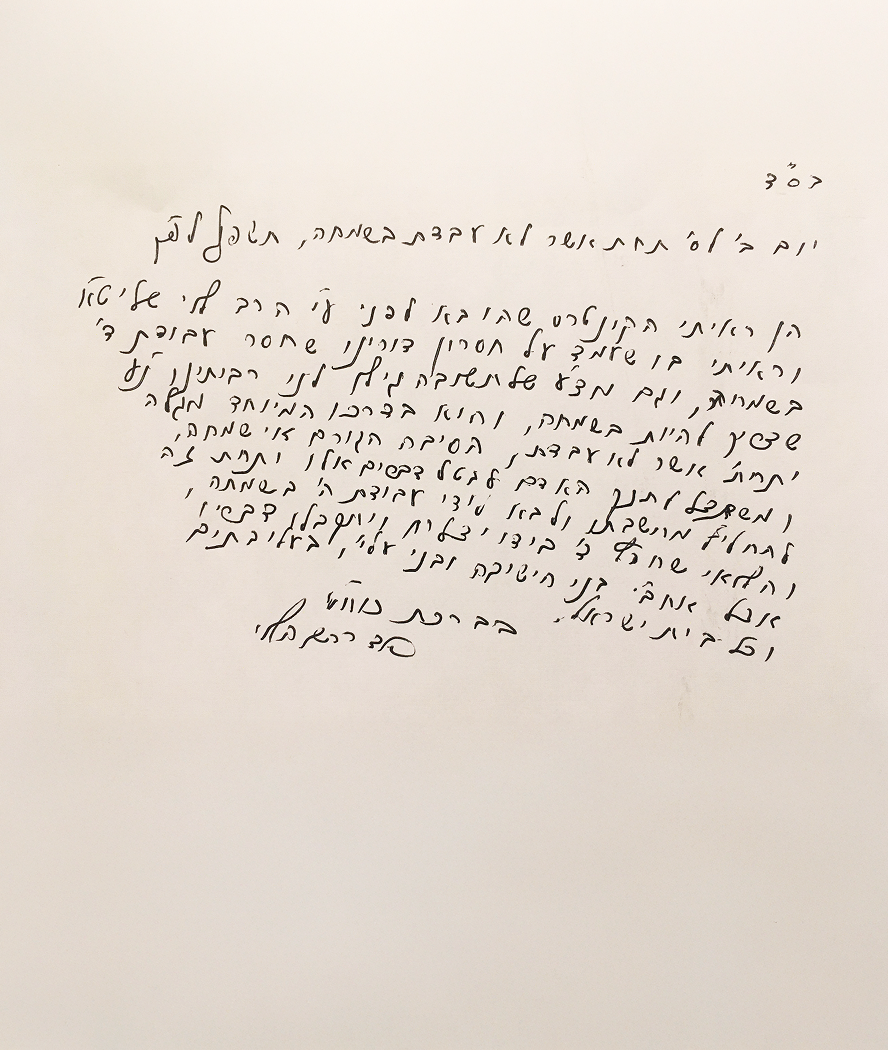 בס"ד
יום ב' לס' תחת אשר לא עבדת בשמחה, תשפ"ף לפ"ק
הן ראיתי הקונטרס שהובא לפני ע"י הרב לוי שליט"א
וראיתי בו שעמד על חסרון דורינו שחסר עבודת ד'
בשמחה, וגם מצ"ע של תשובה גילו לנו רבותינו נ"ע
שצריך להיות בשמחה, והוא בדרכו המיוחד מגלה
'תחת' אשר לא עבדת, הסיבה הגורם אי שמחה,
ומשתדל לחנך האדם לבטל דברים אלו ותחת זה
להחליף מחשבתו ולבא לידי עבודת ה' בשמחה,
והלואי שחפץ ד' בידו יצליח ויתקבלו דבריו
אצל אחב"י בני הישיבה ובני עליי', בעלי בתים
וכל בית ישראל.
בברכת כוח"ט
הלוי